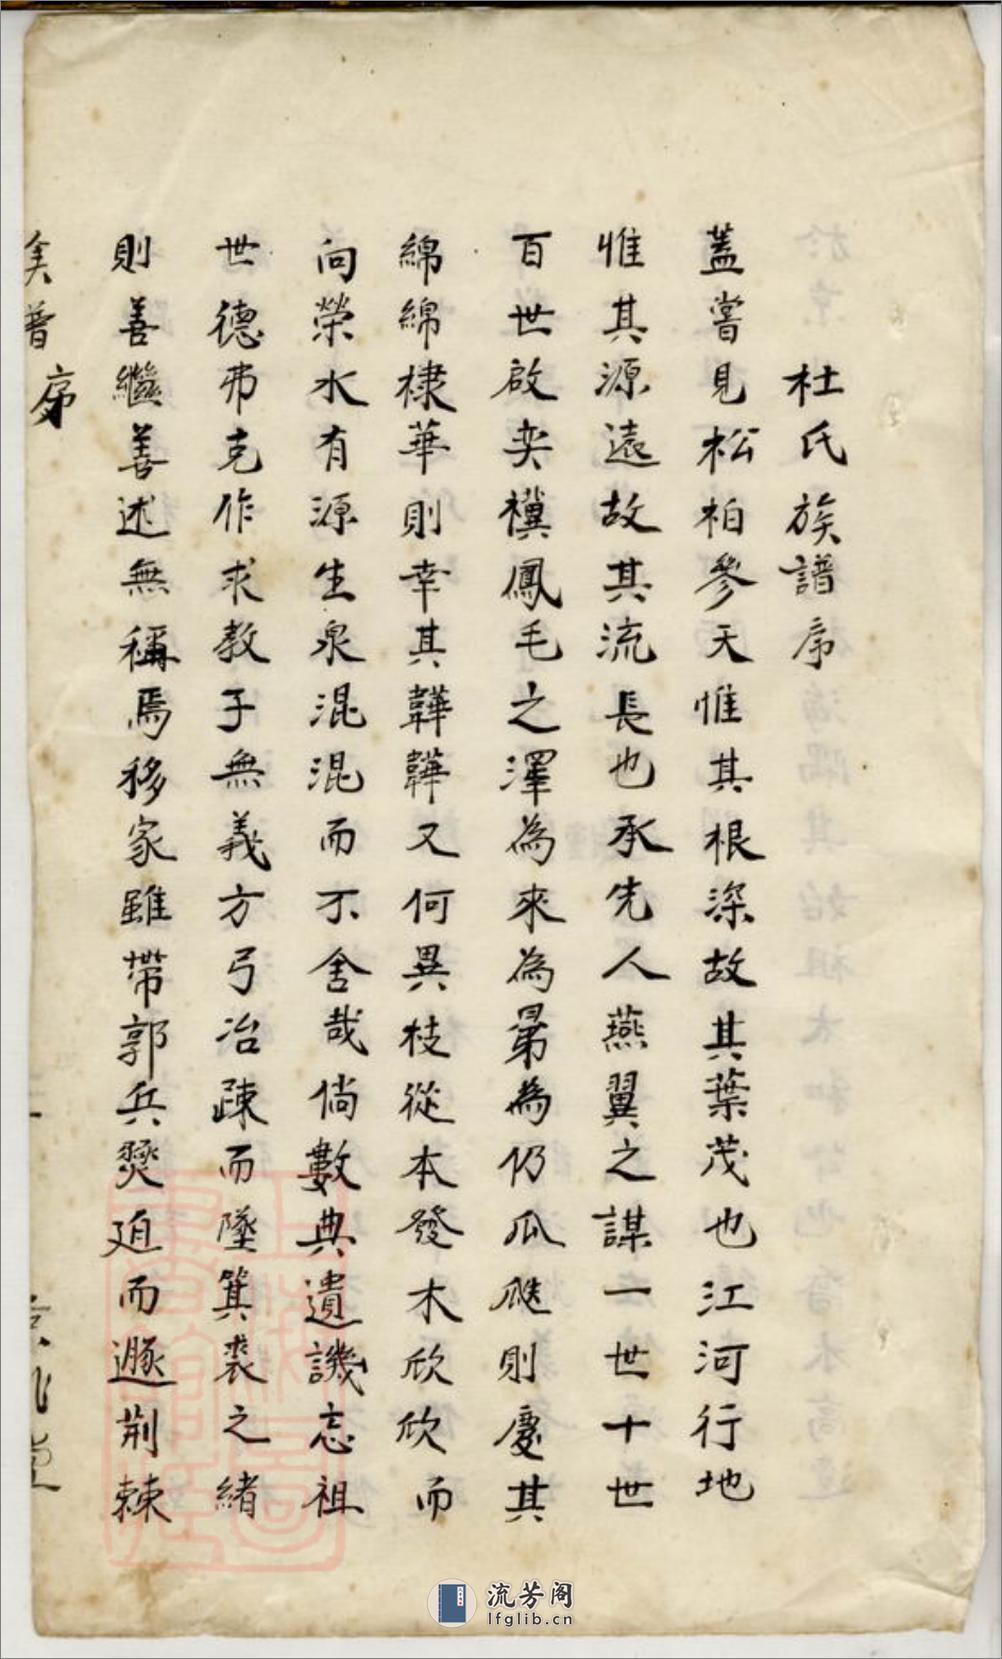 杜氏族譜序
蓋嘗見松柏參天惟其根深故其葉茂也江河行地
惟其源遠故其流長也承先人燕翼之謀一世十世
百世啟奕禩鳳毛之澤為來為晜為仍瓜瓞則慶其
綿綿棣華則幸其韡韡又何異枝從本發木欣欣而
向榮水有源生泉混混而不舍哉倘數典遺譏忘祖
世德弗克作求教子無義方弓冶疎而墜箕裘之緒
則善繼善述無稱焉移家雖帶郭兵燹迫而遯荊棘
族譜序
流芳阁
lfglib.cn